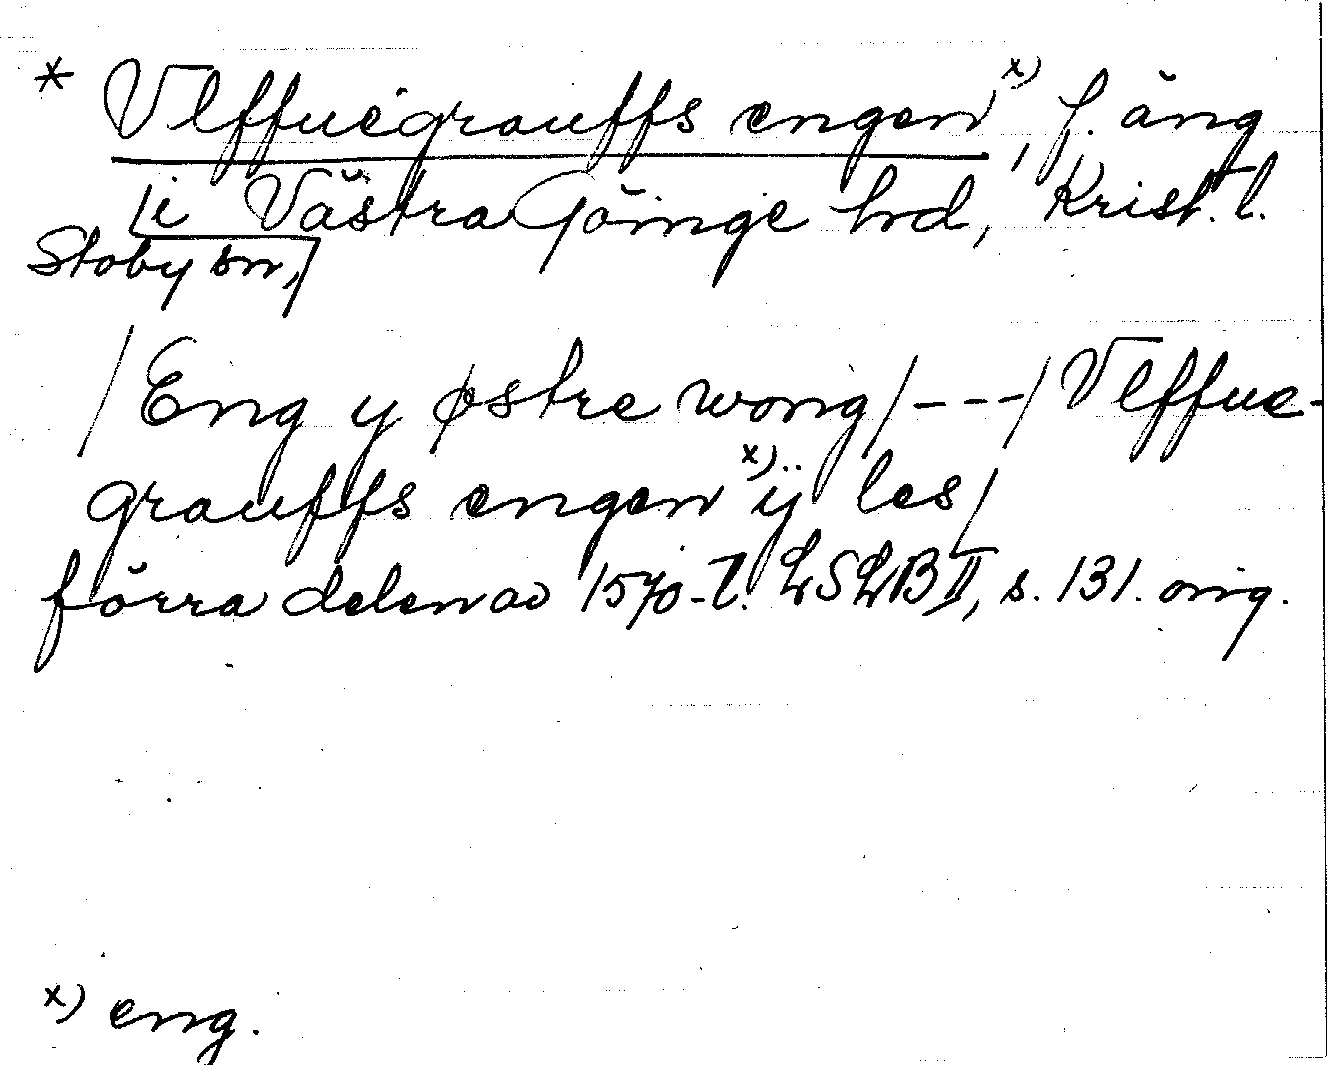 * Vlffuegrauffs engen x), f. äng
i Västra Göinge hd, Krist. l.
Stoby sn,
/Eng y østre wong/---/Vlffue-
grauffs engen x) ÿ les/
förra delen av 1570-t. LSLB II, s. 131. orig.
x) eng.